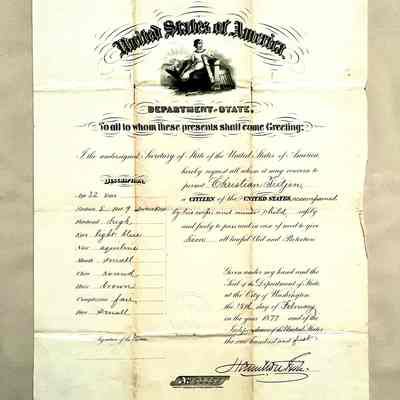 United States of America,
DEPARTMENT OF STATE,
To all to whom these presents shall come Greeting:
I the undersigned Secretary of State of the United States of America
hereby request all whom it may concern to
permit Christian
a CITIZEN of the UNITED STATES, accompanied
by his wife and minor child, safely
and freely to pass and in case of need to give
all lawful Aid and Protection
DESCRIPTION,
Age 32 Years
Stature 5 Feet 9
Forehead high
Eyes light blue
Nose aquiline
Mouth small
Chin round
Hair brown
Complexion fair
Face small
Signature of the Bearer
Given under my hand and the
Seal of the Department of State
at the City of Washington
the day of February
in the year 1877 and of the
Independence of the United States
the one hundred and first.
Hamilton Fish.